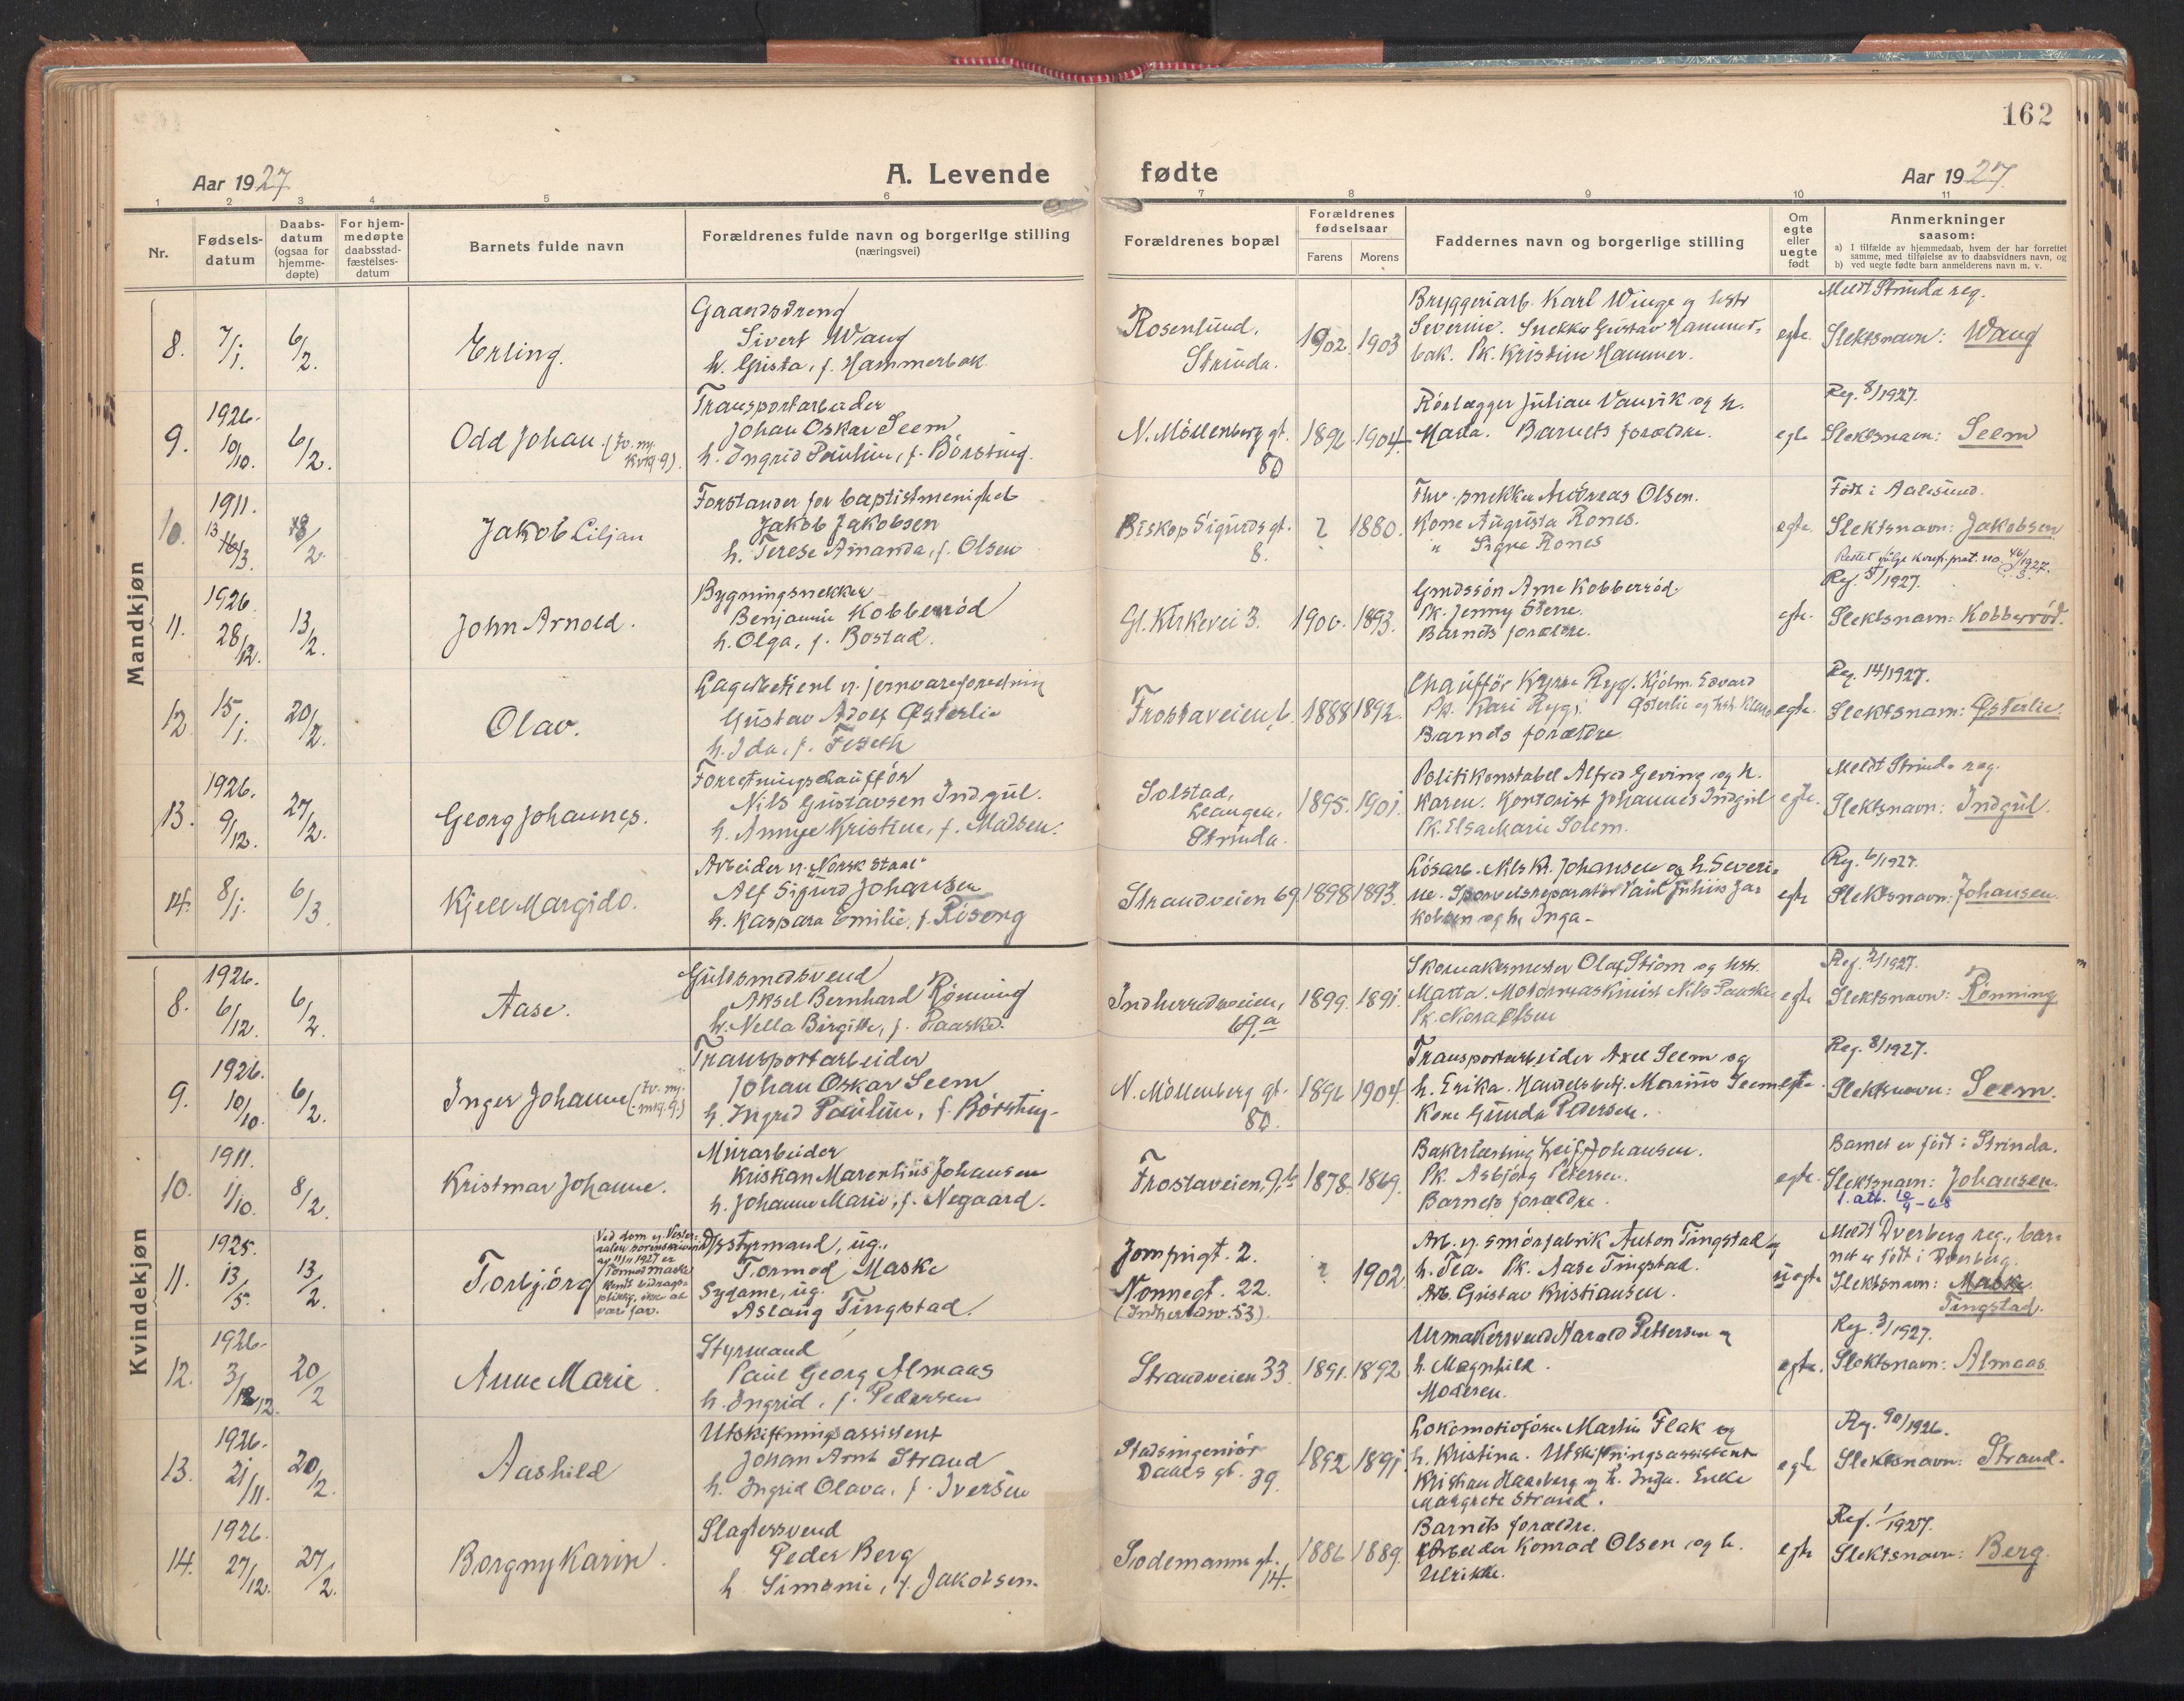 162
Aar 1927.
A. Levende
fødte
Aar 1927.
1 2 3 4 5 6 7 8 9 10 11
Nr.
Fødsels-
datum
Daabs-
datum
(ogsaa for
hjemme-
døpte)
For hjem-
medøpte
daabsstad-
fæstelses-
datum
Barnets fulde navn
Forældrenes fulde navn og borgerlige stilling
(næringsvei)
Forældrenes bopæl
Forældrenes
fødselsaar
Farens
Morens
Faddernes navn og borgerlige stilling
Om
egte
eller
uegte
født
Anmerkninger
saasom:
a) I tilfælde av hjemmedaab, hvem der har forrettet
samme, med tilføielse av to daabsvidners navn, og
b) ved uegte fødte barn anmelderens navn m. v.
Mandkjøn
8. 7/1. 6/2.
Erling.
Gaardsdreng
Sivert Waag
h. Grista, f. Hammerbak.
Rosenlund,
Strinda.
1902. 1903
Bryggeriarb. Karl Winge og hstr
Severine. Snekker Gustav Hammer-
bak. Pk. Kristine Hammer.
egte.
Meldt Strinda reg.
Slektsnavn: Waag
9. 1926.
10/10. 6/2.
Odd Johan. (Tv. m.
kvk. 9).
Transportarbeider
Johan Oskar Seem
h. Ingrid Pauline, f. Börsting.
N. Möllenberg gt.
80
1892. 1904.
Rörlægger Julian Vanvik og h.
Marta. Barnets forældre.
egte
Reg. 8/1927.
Slektsnavn: Seem
10. 1911.
13 16/3. 8/2
Jakob Liljan
Forstander for baptistmenighet
Jakob Jakobsen
h. Terese Amanda, f. Olsen
Biskop Sigurds gt.
8.
? 1880.
Thv. snekker Andreas Olsen.
Kone Augusta Rones.
" Signe Rones
egte.
Født i Aalesund.
Slektsnavn: Jakobsen
Rettet ifølge konf. prot. no. 46/1927.
11. 1926.
28/12. 13/2.
John Arnold.
Bygningsnekker
Benjamin Kobberröd
h. Olga, f. Bostad.
Gl. Kirkevei 3.
1900. 1893.
Gmdssön Arne Kobberröd.
Pk. Jenny Stene.
Barnets forældre.
egte.
Reg. 5/1927.
Slektsnavn: Kobberröd.
12. 15/1. 20/2.
Olav.
Lagerbetjent v. jernvareforretning
Gustav Adolf Østerlie
h. Ida, f. Fiseth
Frostaveien 6.
1888 1892.
Chaufför Kyrre Rygg. Hjelm. Edvard
Pk. Kari Rygg. Østerlie og hstr. Klara
Barnets forældre
egte.
Reg. 14/1927.
Slektsnavn: Østerlie.
13. 1926.
9/12. 27/2.
Georg Johannes.
Forretningschauffør
Nils Gustavsen Indgul.
h. Annye Kristine, f. Madsen.
Solstad,
Leangen,
Strinda.
1895. 1901.
Politikonstabel Alfred Geving og h.
Karen. Kontorist Johannes Indgul
Pk. Elsa Marie Solem.
egte.
Meldt Strinda reg.
Slektsnavn: Indgul.
14. 8/1. 6/3.
Kjell Margido.
Arbeider v. "Norsk Staal"
Alf Sigurd Johansen
h. Kaspara Emilie, f. Riseng
Strandveien 69.
1898 1893.
Lösarb. Nils Kr. Johansen og h. Severi-
ne. Sporveisreparatör Paul Julius Ja-
kobsen og h. Inga-
egte
Reg. 6/1927.
Slektsnavn: Johansen.
Kvindekjøn
8. 1926.
6/12. 6/2.
Aase.
Guldsmedsvend
Aksel Bernhard Rönning
h. Nella Birgitte, f. Paaske.
Indherredsveien,
69.a
1899. 1891.
Skomakermester Olaf Strøm og hstr.
Marta. Motormaskinist Nils Paaske
Pk. Nora Olsen
egte
Reg. 2/1927.
Slektsnavn: Rönning
9. 1926.
10/10. 6/2.
Inger Johanne (Tv. m.
mk. 9.)
Transportarbeider
Johan Oskar Seem
h. Ingrid Pauline, f. Börsting.
N. Möllenberg gt.
80.
1892 1904.
Transportarbeider Axel Seem og
h. Erika. Handelsbetj. Marius Seem
Kone Gunda Pedersen.
egte.
Reg. 8/1927.
Slektsnavn: Seem.
10. 1911.
1/10. 8/2.
Kristmar Johanne.
Murarbeider
Kristian Marentius Johansen
h. Johanne Marie, f. Negaard.
Frostaveien, 9.b
1878. 1869.
Bakerlærling Leif Johansen.
Pk. Asbjörg Petersen.
Barnets forældre.
egte.
Barnet er født i Strinda.
Slektsnavn: Johansen.
1. att. 10/9-68
11. 1925.
13/5. 13/2.
Torbjörg
Ved dom v. Vester-
aalen sorenskriveri
av 11/11 1927 er
Tormod Maske
kjendt bidrags-
pliktig, ikke at
være far.
Styrmand, ug.,
Tormod Maske
Sydame, ug.
Aslaug Tingstad.
Jomfrugt. 2.
Nonnegt. 22.
(Indherredsv. 53).
? 1902.
Arb. v. smörfabrik Anton Tingstad og
h. Tea. Pk. Aase Tingstad.
Arb. Gustav Kristiansen.
uegte
Meldt Dverberg reg., bar-
net er født i Dverberg.
Slektsnavn: Maske
Tingstad.
12. 1926.
3/12 12. 20/2
Anne Marie.
Styrmand
Paul Georg Almaas
h. Ingrid, f. Pedersen
Strandveien 33
1891. 1892
Urmakersvend Harald Pettersen og
h. Magnhild.
Moderen.
egte.
Reg. 3/1927.
Slektsnavn: Almaas
13. 1926.
21/11. 20/2.
Aashild
Utskiftningsassistent
Johan Arnt Strand
h. Ingrid Olava, f. Iversen
Stadsingeniör
Dahls gt. 39
1892 1891.
Lokomotivförer Martin Flak og
h. Kristina. Utskiftningsassistent
Kristian Haarberg og h. Inga. Enke
Margrete Strand.
egte
Reg. 90/1926.
Slektsnavn: Strand.
14. 1926.
27/12. 27/2.
Borgny Karin.
Slagtersvend
Peder Berg
h. Simonie, f. Jakobsen.
Sodemanns gt.
14.
1886 1889.
Barnets forældre.
Arbeider Konrad Olsen og h.
Ulrikke.
egte
Reg. 1/1927.
Slektsnavn: Berg.